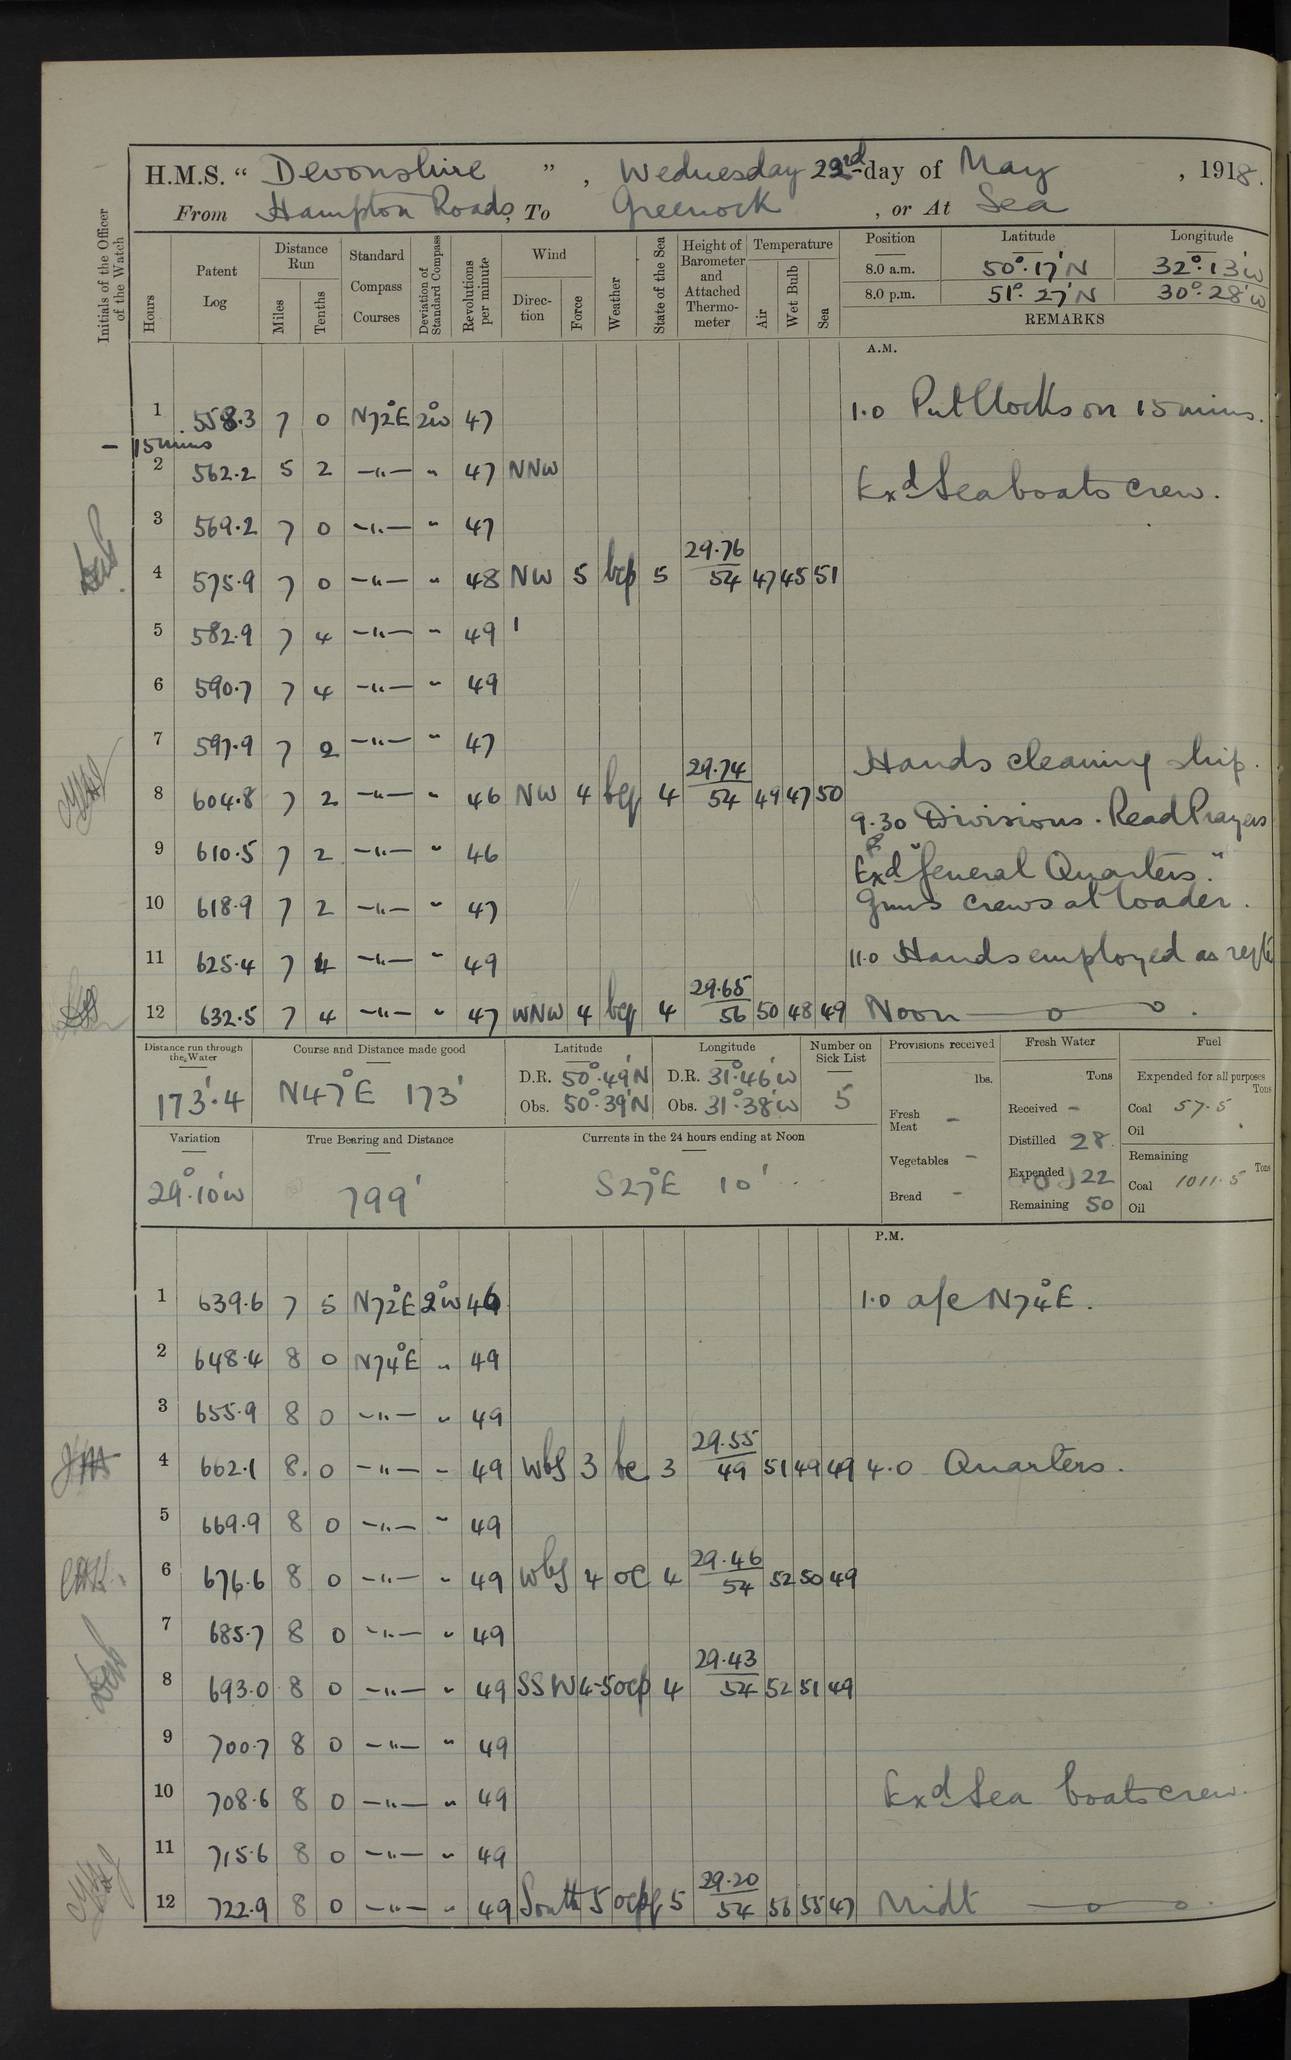 H.M.S. “ Devonshire ” , Wednesday 22nd day of May , 1918.
From Hampton Roads, To Greenock , or At Sea
Initials of the Officer of the Watch
Hours
Patent Log
Distance Run
Miles
Tenths
Standard Compass Courses
Deviation of Standard Compass
Revolutions per minute
Wind
Direc-tion
Force
Weather
State of the Sea
Height of Barometer and Attached Thermo-meter
Temperature
Air
Wet Bulb
Sea
Position Latitude Longitude
8.0 a.m. 50°.17'N 32°.13'W
8.0 p.m. 51°.27'N 30°.28'W
REMARKS
A.M.
1 558.3 7 0 N72°E 2°W 47 1.0 Put Clocks on 15 mins.
- 15 mins
2 562.2 5 2 -"- " 47 NNW Exd Seaboats crew.
3 569.2 7 0 -"- " 47
29.76
4 575.9 7 0 -"- " 48 NW 5 bcp 5 54 47 45 51
5 582.9 7 4 -"- " 49
6 590.7 7 4 -"- " 49
7 597.9 7 2 -"- " 47 Hands cleaning ship.
29.74
8 604.8 7 2 -"- " 46 NW 4 bcq 4 54 49 47 50
9.30 Divisions. Read Prayers
9 610.5 7 2 -"- " 46 Exd "General Quarters."
10 618.9 7 2 -"- " 47 Guns crews at loader.
11 625.4 7 4 -"- " 49 11.0 Hands employed as reqte
29.65
12 632.5 7 4 -"- " 47 WNW 4 bcq 4 56 50 48 49 Noon
Distance run through the Water 173'.4
Course and Distance made good N47°E 173'
Latitude
D.R. 50°.49'N
Obs. 50°.39'N
Longitude
D.R. 31°.46'W
Obs. 31°.38'W
Number on Sick List 5
Provisions received
lbs.
Fresh Meat -
Vegetables -
Bread -
Fresh Water
Tons
Received -
Distilled 28
Expended 22
Remaining 50
Fuel
Expended for all purposes
Tons
Coal 57.5
Oil
Remaining
Tons
Coal 1011.5
Oil
Variation 29°.10'W
True Bearing and Distance 799'
Currents in the 24 hours ending at Noon S27°E 10'
P.M.
1 639.6 7 5 N72°E 2°W 46 1.0 a/c N74°E.
2 648.4 8 0 N74°E " 49
3 655.9 8 0 -"- " 49
29.55
4 662.1 8. 0 -"- " 49 WbS 3 bc 3 49 51 49 49 4.0 Quarters.
5 669.9 8 0 -"- " 49
29.46
6 676.6 8 0 -"- " 49 WbS 4 oc 4 54 52 50 49
7 685.7 8 0 -"- " 49
29.43
8 693.0 8 0 -"- " 49 SSW 4-5 ocp 4 54 52 51 49
9 700.7 8 0 -"- " 49
10 708.6 8 0 -"- " 49 Exd Sea boats crew.
11 715.6 8 0 -"- " 49
29.20
12 722.9 8 0 -"- " 49 South 5 ocpq 5 54 56 55 47 Midt